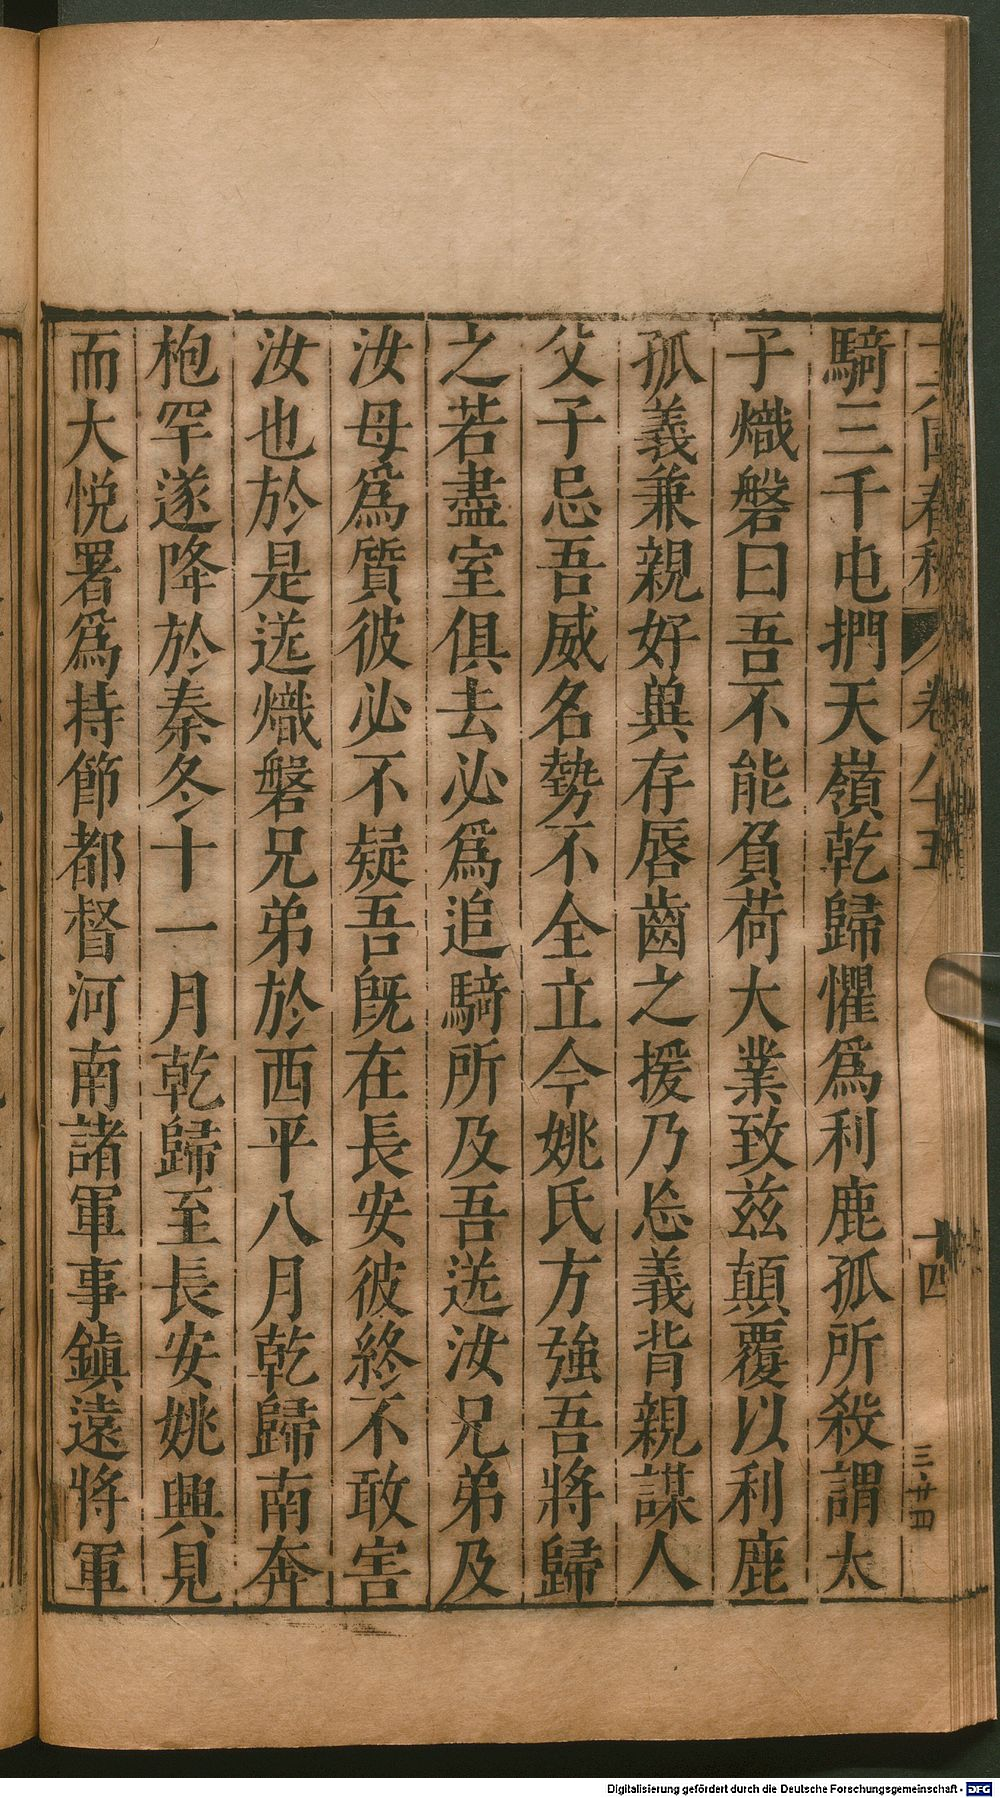 十六國春秋 卷八十五 十四 三廿四
騎三千屯捫天嶺乾歸懼爲利鹿孤所殺謂太
子熾磐曰吾不能負荷大業致兹顛覆以利鹿
孤義兼親好兾存唇齒之援乃忘義背親謀人
父子忌吾威名勢不全立今姚氏方強吾將歸
之若盡室俱去必爲追騎所及吾送汝兄弟及
汝母爲質彼必不疑吾旣在長安彼終不敢害
汝也於是送熾磐兄弟於西平八月乾歸南奔
枹罕遂降於秦冬十一月乾歸至長安姚興見
而大悅署爲持節都督河南諸軍事鎭遠將軍
Digitalisierung gefördert durch die Deutsche Forschungsgemeinschaft - DFG